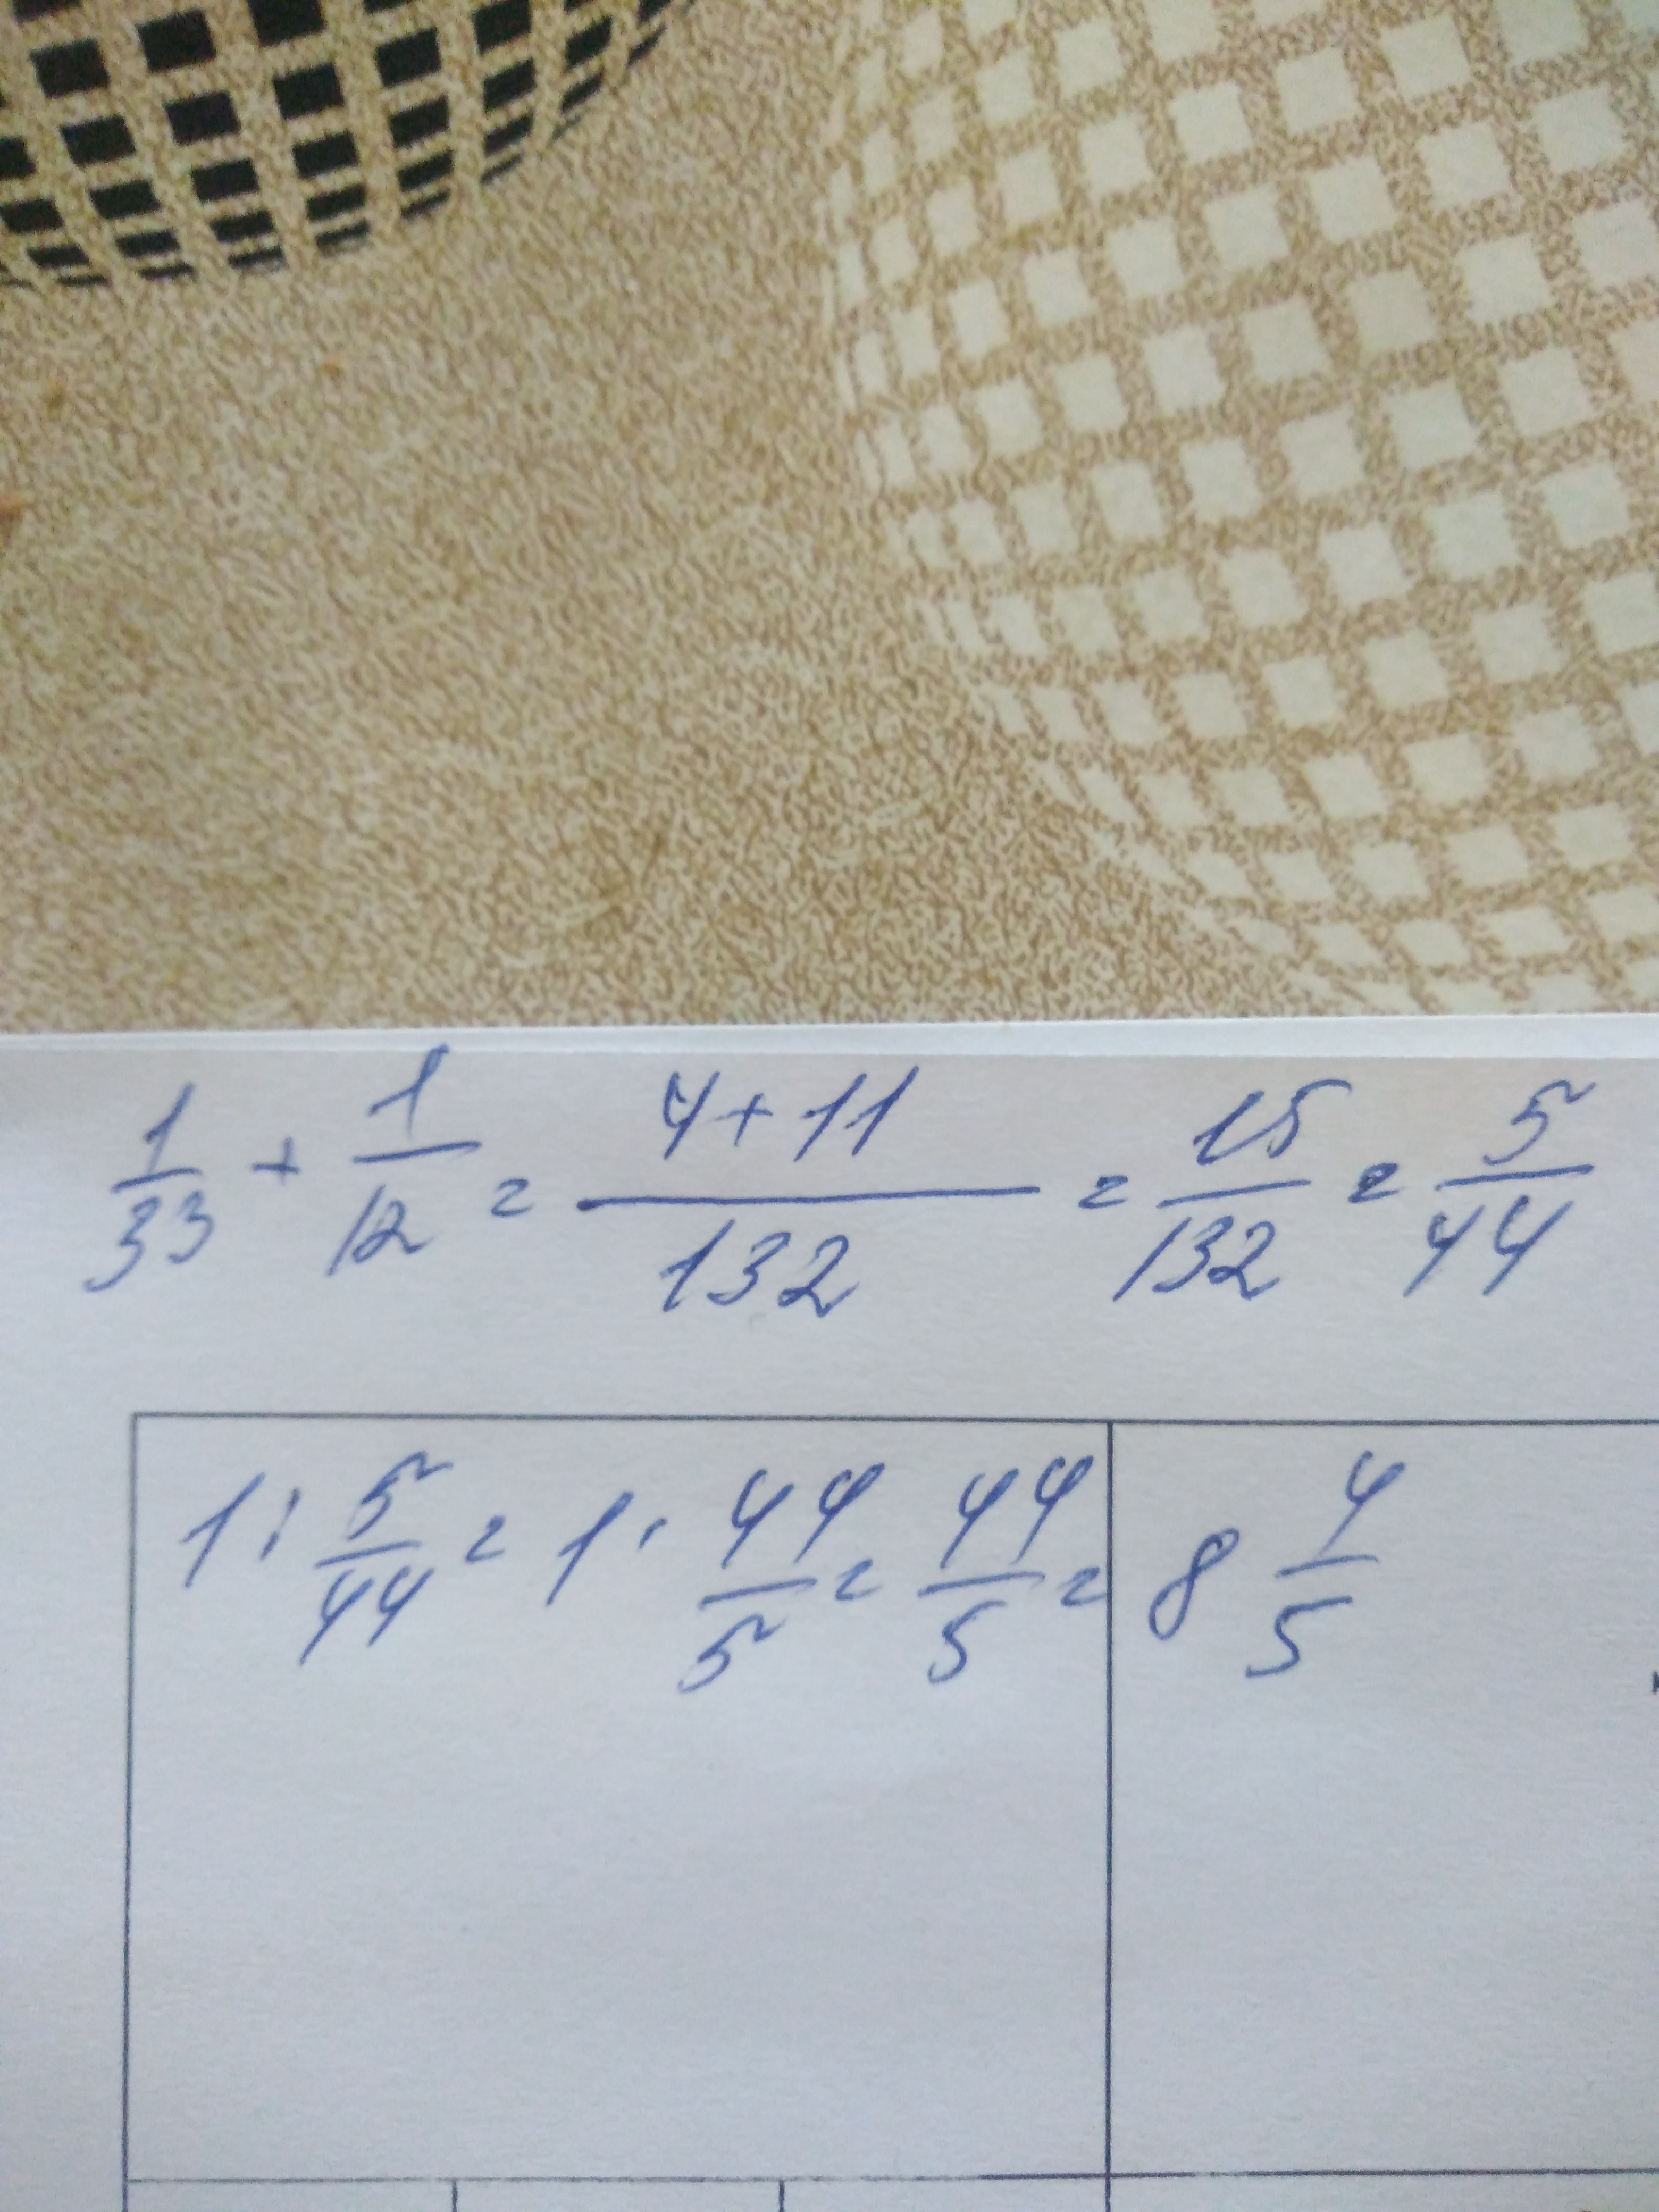 1/33 + 1/12 = (4+11)/132 = 15/132 = 5/44
1 : 5/44 = 1 · 44/5 = 44/5 = 8 4/5